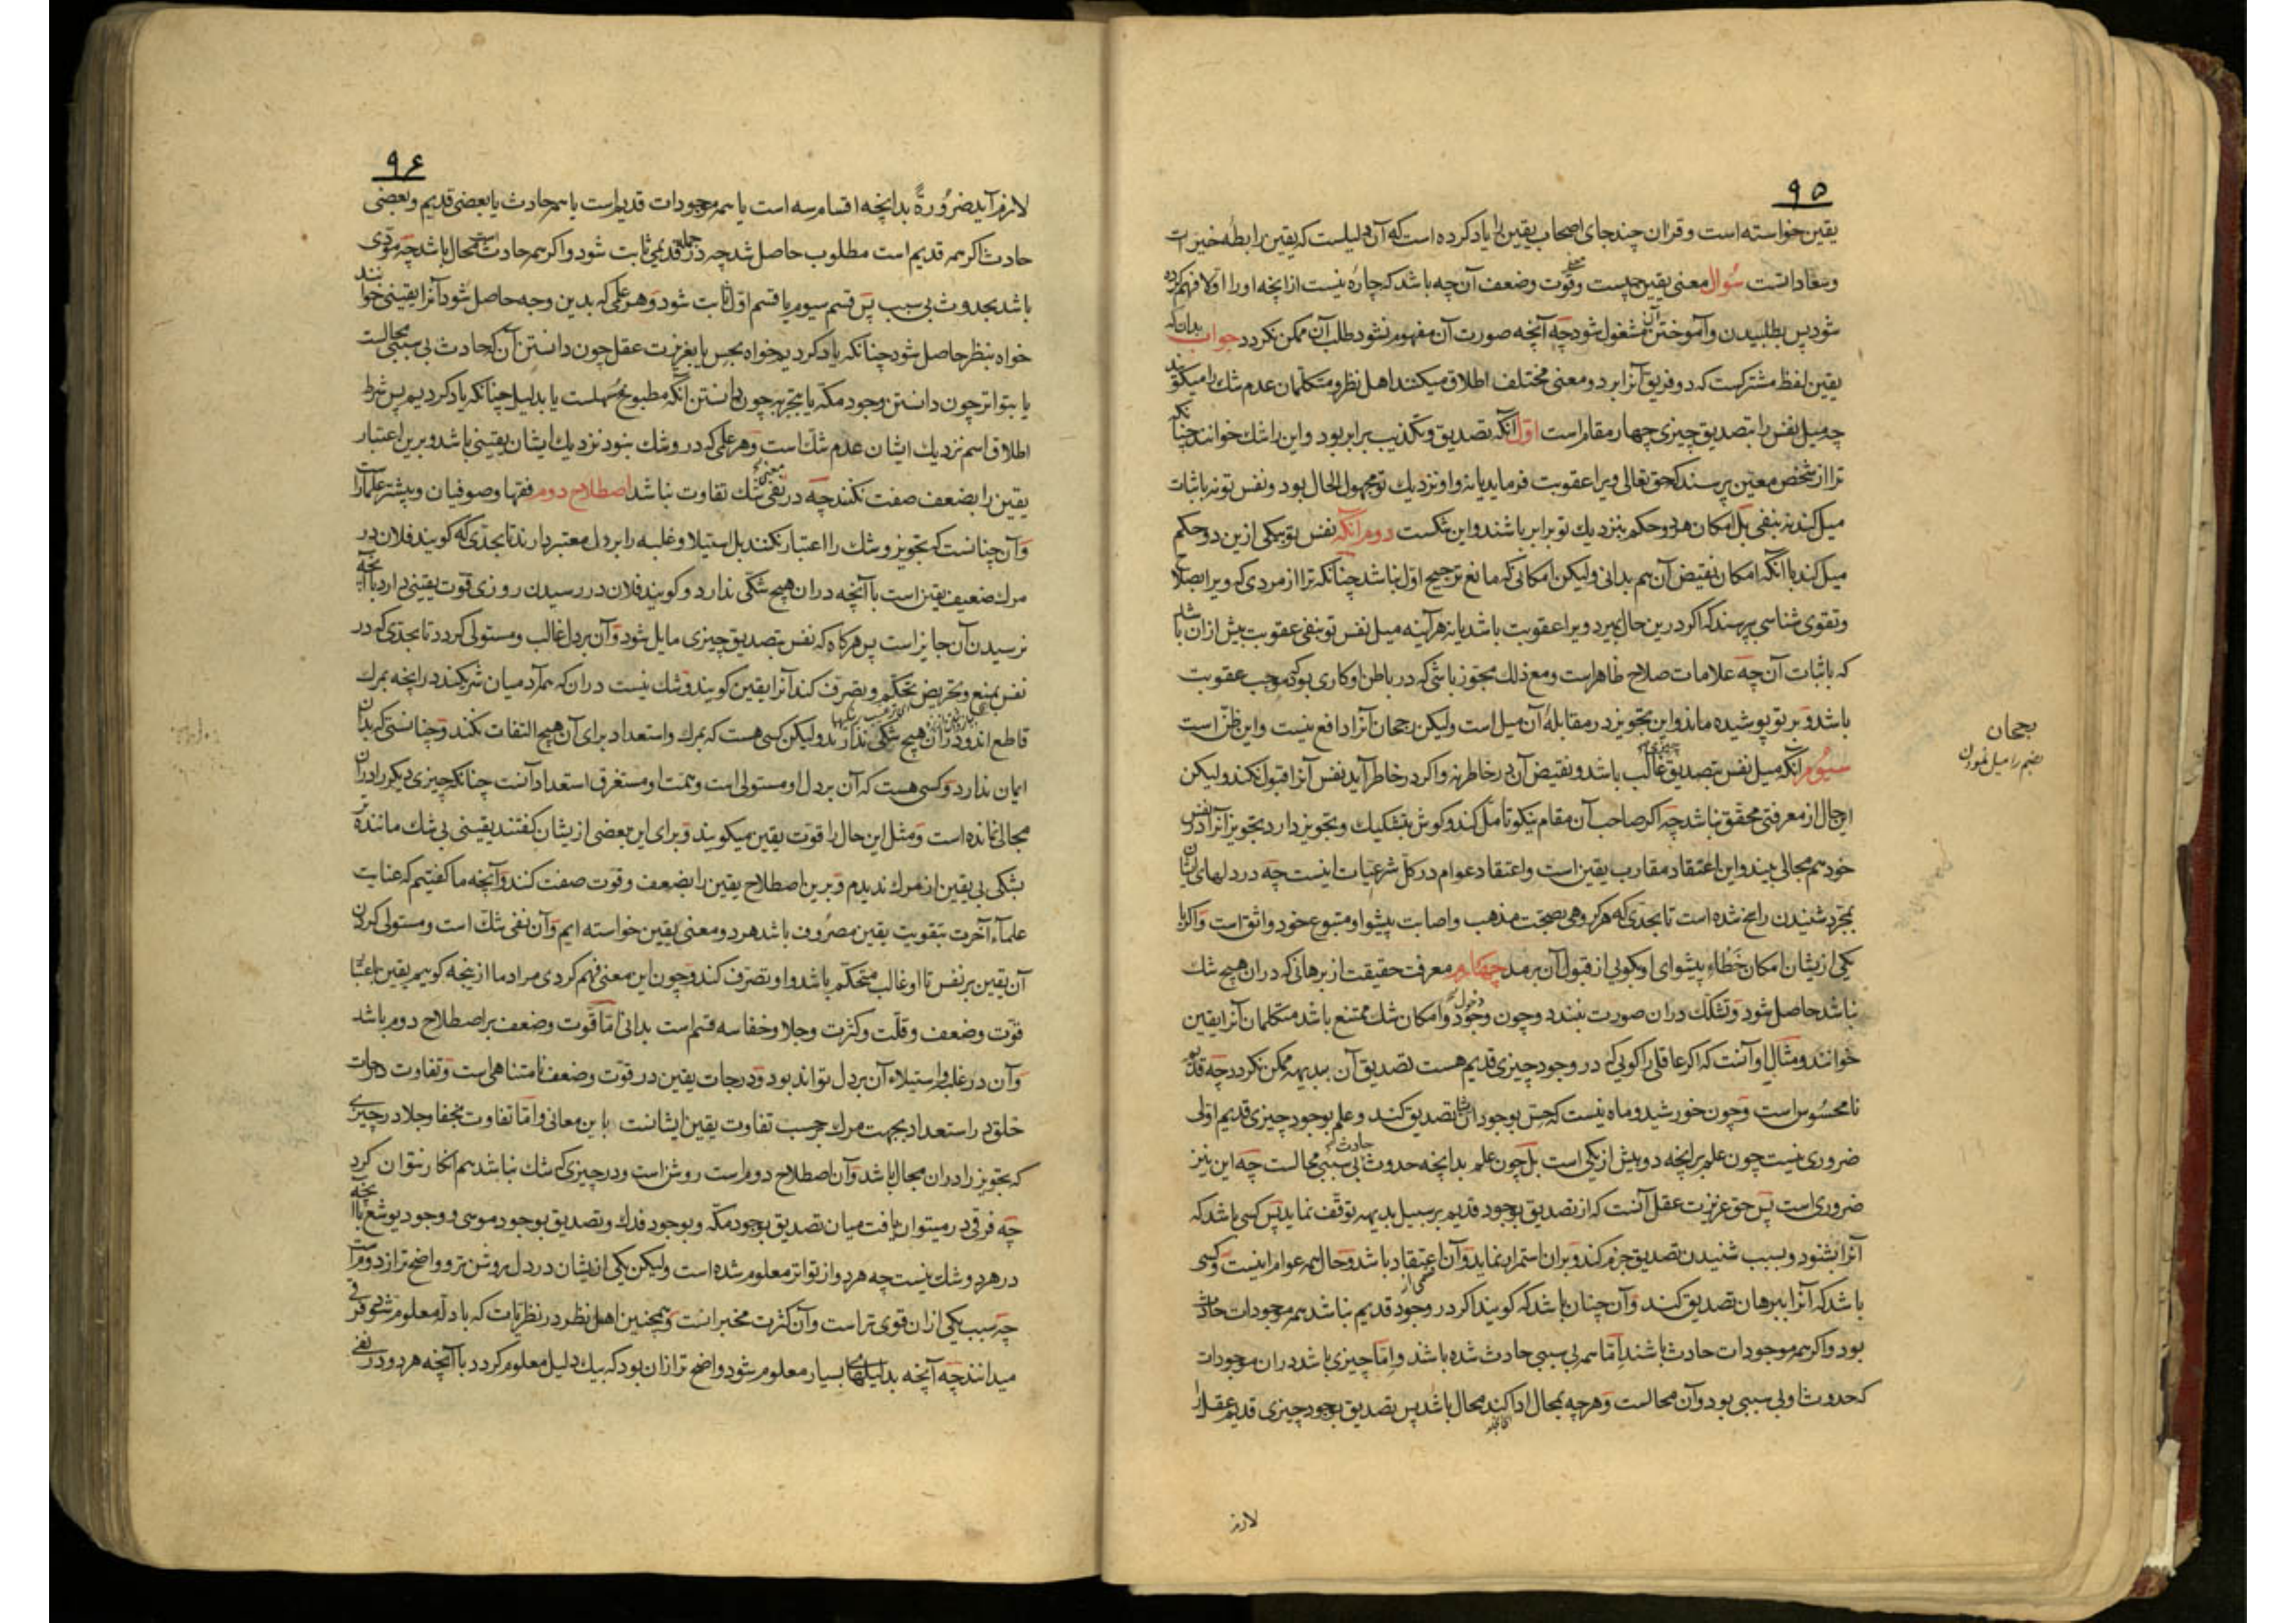 ۹۵
یقین خواسته است و قران چند جای اصحاب یقین را یاد کرده است که آن دلیلست که یقین رابطهٔ خیرات
و سعاداتست سُوال معنی یقین چیست و قوّت وضعف آن چه باشد که چاره نیست از انچه اورا اوّلا فهم کرده
شود پس بطلبیدن و آموختن آن مشغول شود چه آنچه صورت آن مفهوم نشود طلب آن ممکن نکردد جواب بدان که
یقین لفظ مشترکست که دو فریق آنرا بر دو معنی مختلف اطلاق میکنند اهل نظر و متکلّمان عدم شك را میکویند
چه میل نفس را بتصدیق چیزی چهار مقام است اوّل آنکه تصدیق و تکذیب برابر بود و این را شك خوانند چنانکه
ترا از شخص معیّن پرسند که حق تعالی ویرا عقوبت فرماید یا نه و او نزدیك تو مجهول الحال بود و نفس تو نه باثبات
میل کند نه بنفی بل امکان هر دو حکم بنزدیك تو برابر باشند و این شکست دوم آنکه نفس تو بیکی ازین دو حکم
میل کند با آنکه امکان نقیض آن هم بدانی ولیکن امکانی که مانع ترجیح اوّل نباشد چنانکه ترا از مردی که ویرا بصلاح
و تقوی شناسی پرسند که اکر درین حال بمیرد ویرا عقوبت باشد یا نه هر آینه میل نفس تو بنفی عقوبت بیش ازان باشد
که باثبات آن چه علامات صلاح ظاهر است و مع ذلك مجوز باشی که در باطن او کاری بود که موجب عقوبت
باشد و بر تو پوشیده ماند و این تجویز در مقابلهٔ آن میل است ولیکن رجحان آنرا دافع نیست و این ظنّ است
سیوم آنکه میل نفس بتصدیق چیزی غالب باشد و نقیض آن در خاطر نه و اکر در خاطر آید نفس آنرا قبول نکند ولیکن
این حال از معرفتی محقّق نباشد چه اکر صاحب آن مقام نیکو تامل کند و کوش بتشکیك و تجویز دارد تجویز آنرا در نفس
خود هم مجالی بیند و این اعتقاد مقارب یقین است و اعتقاد عوام در کل شرعیات اینست چه در دلهای ایشان
بمجرّد شنیدن راسخ شده است تا بحدّی که هر کروهی بصحّت مذهب و اصابت پیشوا و متبوع خود واثق است و اکر با
یکی ازیشان امکان خطاءِ پیشوای او بکویی از قبول آن برمد چهارم معرفت حقیقت از برهانی که دران هیچ شك
نباشد حاصل شود و تشکّك دران صورت نبندد و چون وجود و امکان شك ممتنع باشد متکلمان آنرا یقین
خوانند و مثال او آنست که اکر عاقلی را کویی که در وجود چیزی قدیم هست تصدیق آن ببدیهه ممکن نکردد چه قدیم
نامحسُوس است و چون خورشید و ماه نیست که حس بوجود ایشان تصدیق کند و علم بوجود چیزی قدیم اوّلی
ضروری نیست چون علم بر انچه دو بیش از یکی است بل چون علم بدانچه حدوث حادث بی سببی محالست چه این نیز
ضروری است پس حق غریزت عقل آنست که از تصدیق بوجود قدیم بر سبیل بدیهه توقّف نماید پس کسی باشد که
آنرا بشنود و بسبب شنیدن تصدیق جزم کند و بران استمرار نماید و آن اعتقاد باشد و حال همه عوام اینست و کسی
باشد که آنرا ببرهان تصدیق کند و آن چنان باشد که کویند اکر در وجود قدیم نباشد همه موجودات حادث
بود و اکر همه موجودات حادث باشند اِمّا همه بی سببی حادث شده باشد و اِمّا چیزی باشد دران موجودات
که حدوث او بی سببی بود و آن محالست و هرچه بمحال ادا کند محال باشد پس تصدیق بوجود چیزی قدیم عقل را
لازم
رجحان
۹۶
لازم آید ضرُورةً بدانچه اقسام سه است یا همه موجودات قدیم است یا همه حادث یا بعضی قدیم و بعضی
حادث اکر همه قدیم است مطلوب حاصل شد چه در جمله قدیمی ثابت شود و اکر همه حادث است محال باشد چه مؤدّی
باشد بحدوث بی سبب پس قسم سیوم یا قسم اوّل ثابت شود و هر علمی که بدین وجه حاصل شود آنرا یقینی خوانند
خواه بنظر حاصل شود چنانکه یاد کردیم خواه بحس یا بغریزت عقل چون دانستن آن که حادث بی سببی محالست
یا بتواتر چون دانستن وجود مکّه یا بتجربه چون دانستن آنکه مطبوخ مُسهلست یا بدلیل چنانکه یاد کردیم پس شرط
اطلاق اسم نزدیك ایشان عدم شكّ است و هر علمی که در و شك نبود نزدیك ایشان یقینی باشد و برین اعتبار
یقین را بضعف صفت نکنند چه در نفی شك تفاوت نباشد اصطلاح دوم فقها و صوفیان و بیشتر علماراست
و آن چنانست که تجویز و شك را اعتبار نکنند بل استیلا و غلبه را بر دل معتبر دارند تا بحدّی که کویند فلان در
مرك ضعیف یقین است با آنچه دران هیچ شکّی ندارد و کویند فلان در رسیدن روزی قوّت یقینی دارد با آنچه
نرسیدن آن جایز است پس هرکاه که نفس بتصدیق چیزی مایل شود و آن بر دل غالب و مستولی کردد تا بحدّی که در
نفس بمنع و تحریض تحکّم و تصرّف کند آنرا یقین کویند و شك نیست دران که همه آدمیان شریکند درانچه بمرك
قاطع اند و دران هیچ شکّی ندارند ولیکن کسی هست که بمرك و استعداد برای آن هیچ التفات نکند و چنانستی که بدان
ایمان ندارد و کسی هست که آن بر دل او مستولی است و همّت او مستغرق استعداد آنست چنانکه چیزی دیکر را دران
مجالی نمانده است و مثل این حال را قوّت یقین میکویند و برای این بعضی ازیشان کفتند یقینی بی شك ماننده تر
بشکی بی یقین از مرك ندیدم و برین اصطلاح یقین را بضعف و قوّت صفت کند و آنچه ما کفتیم که عنایت
علماءِ آخرت بتقویت یقین مصرُوف باشد هر دو معنی یقین خواسته ایم و آن نفی شكّ است و مستولی کردن
آن یقین بر نفس تا او غالب متحکّم باشد و او تصرّف کند و چون این معنی فهم کردی مراد ما ازینچه کوییم یقین باعتبار
قوّت وضعف و قلّت و کثرت و جلا و خفا سه قسم است بدانی امّا قوّت وضعف بر اصطلاح دوم باشد
و آن در غلبه و استیلاء آن بر دل تواند بود و درجات یقین در قوّت وضعف نامتناهی است و تفاوت درجات
خلق در استعداد بجهت مرك بر حسب تفاوت یقین ایشانست باین معانی و امّا تفاوت بخفا و جلا در چیزی
که تجویز را دران مجال باشد و آن اصطلاح دوم است روشن است و در چیزی که شك نباشد هم انکار نتوان کرد
چه فرقی در میتوان یافت میان تصدیق بوجود مکّه و بوجود فدك و تصدیق بوجود موسی و وجود یوشع با آنچه
در هر دو شك نیست چه هر دو از تواتر معلوم شده است ولیکن یکی ازیشان در دل روشن تر و واضح تر از دوم است
چه سبب یکی ازان قوی تر است و آن کثرت مخبرانست و همچنین اهل نظر در نظریّات که بادله معلوم شود فرقی
میدانند چه آنچه بدلیلهای بسیار معلوم شود واضح تر ازان بود که بیك دلیل معلوم کردد با آنچه هر دو در نفی